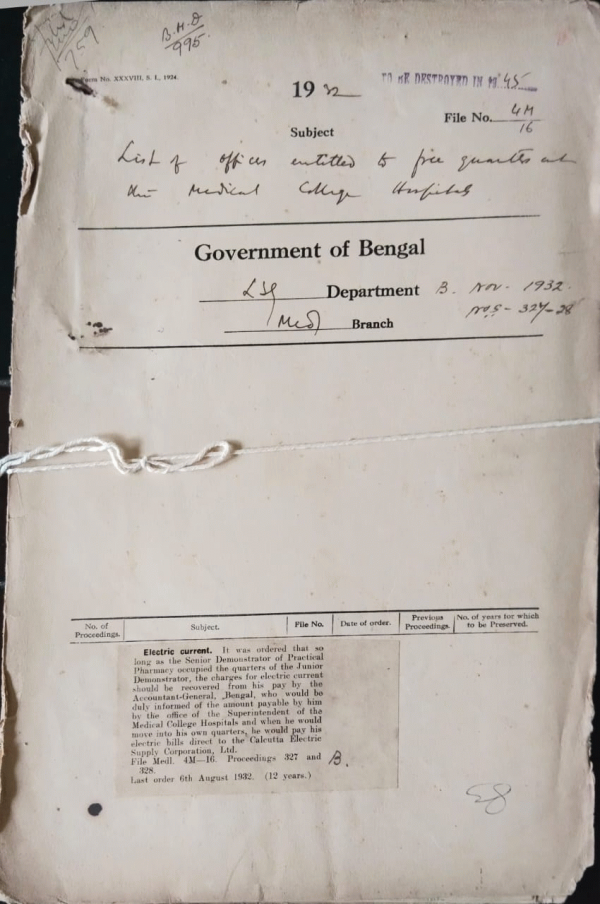 759
B.H.D
995.
Form No. XXXVIII, S. I., 1924.
1932
TO BE DESTROYED IN 1945
File No. 4M/16
Subject
List of officers entitled to free quarters at
the Medical College Hospitals
Government of Bengal
LSG Department B. Nov. 1932.
Medl Branch Nos- 327-28
No. of Proceedings. Subject. File No. Date of order. Previous Proceedings. No. of years for which to be Preserved.
Electric current. It was ordered that so
long as the Senior Demonstrator of Practical
Pharmacy occupied the quarters of the Junior
Demonstrator, the charges for electric current
should be recovered from his pay by the
Accountant-General, Bengal, who would be
duly informed of the amount payable by him
by the office of the Superintendent of the
Medical College Hospitals and when he would
move into his own quarters, he would pay his
electric bills direct to the Calcutta Electric
Supply Corporation, Ltd.
File Medl. 4M—16. Proceedings 327 and
328. B.
Last order 6th August 1932. (12 years.)